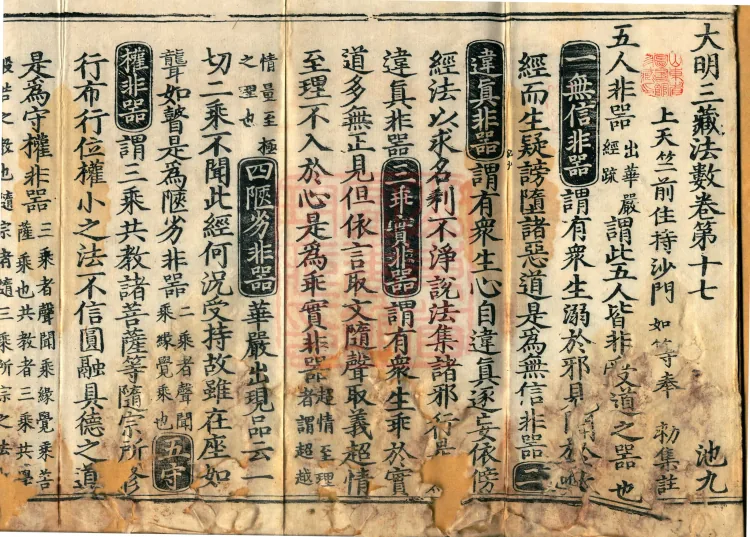 大明三藏法數卷第十七 池九
上天竺前住持沙門 如等奉 勅集註
五人非器 出華嚴經疏 謂此五人皆非受道之器也
一無信非器 謂有眾生溺於邪見聞於
經而生疑謗墮諸惡道是為無信非器 二
違真非器 謂有眾生心自違真逐妄依傍
經法以求名利不淨說法集諸邪行是
違真非器 三乖實非器 謂有眾生乖於實
道多無正見但依言取文隨聲取義超情
至理不入於心是為乖實非器 超情至理者謂超越
情量至極之理也 四陿劣非器 華嚴出現品云一
切二乘不聞此經何況受持故雖在座如
聾如瞽是為陿劣非器 二乘者聲聞乘緣覺乘也 五守
權非器 謂三乘共教諸菩薩等隨宗所修
行布行位權小之法不信圓融具德之道
是為守權非器 三乘者聲聞乘緣覺乘菩薩乘也共教者三乘共學
般若之教也隨宗者隨三乘所宗之法